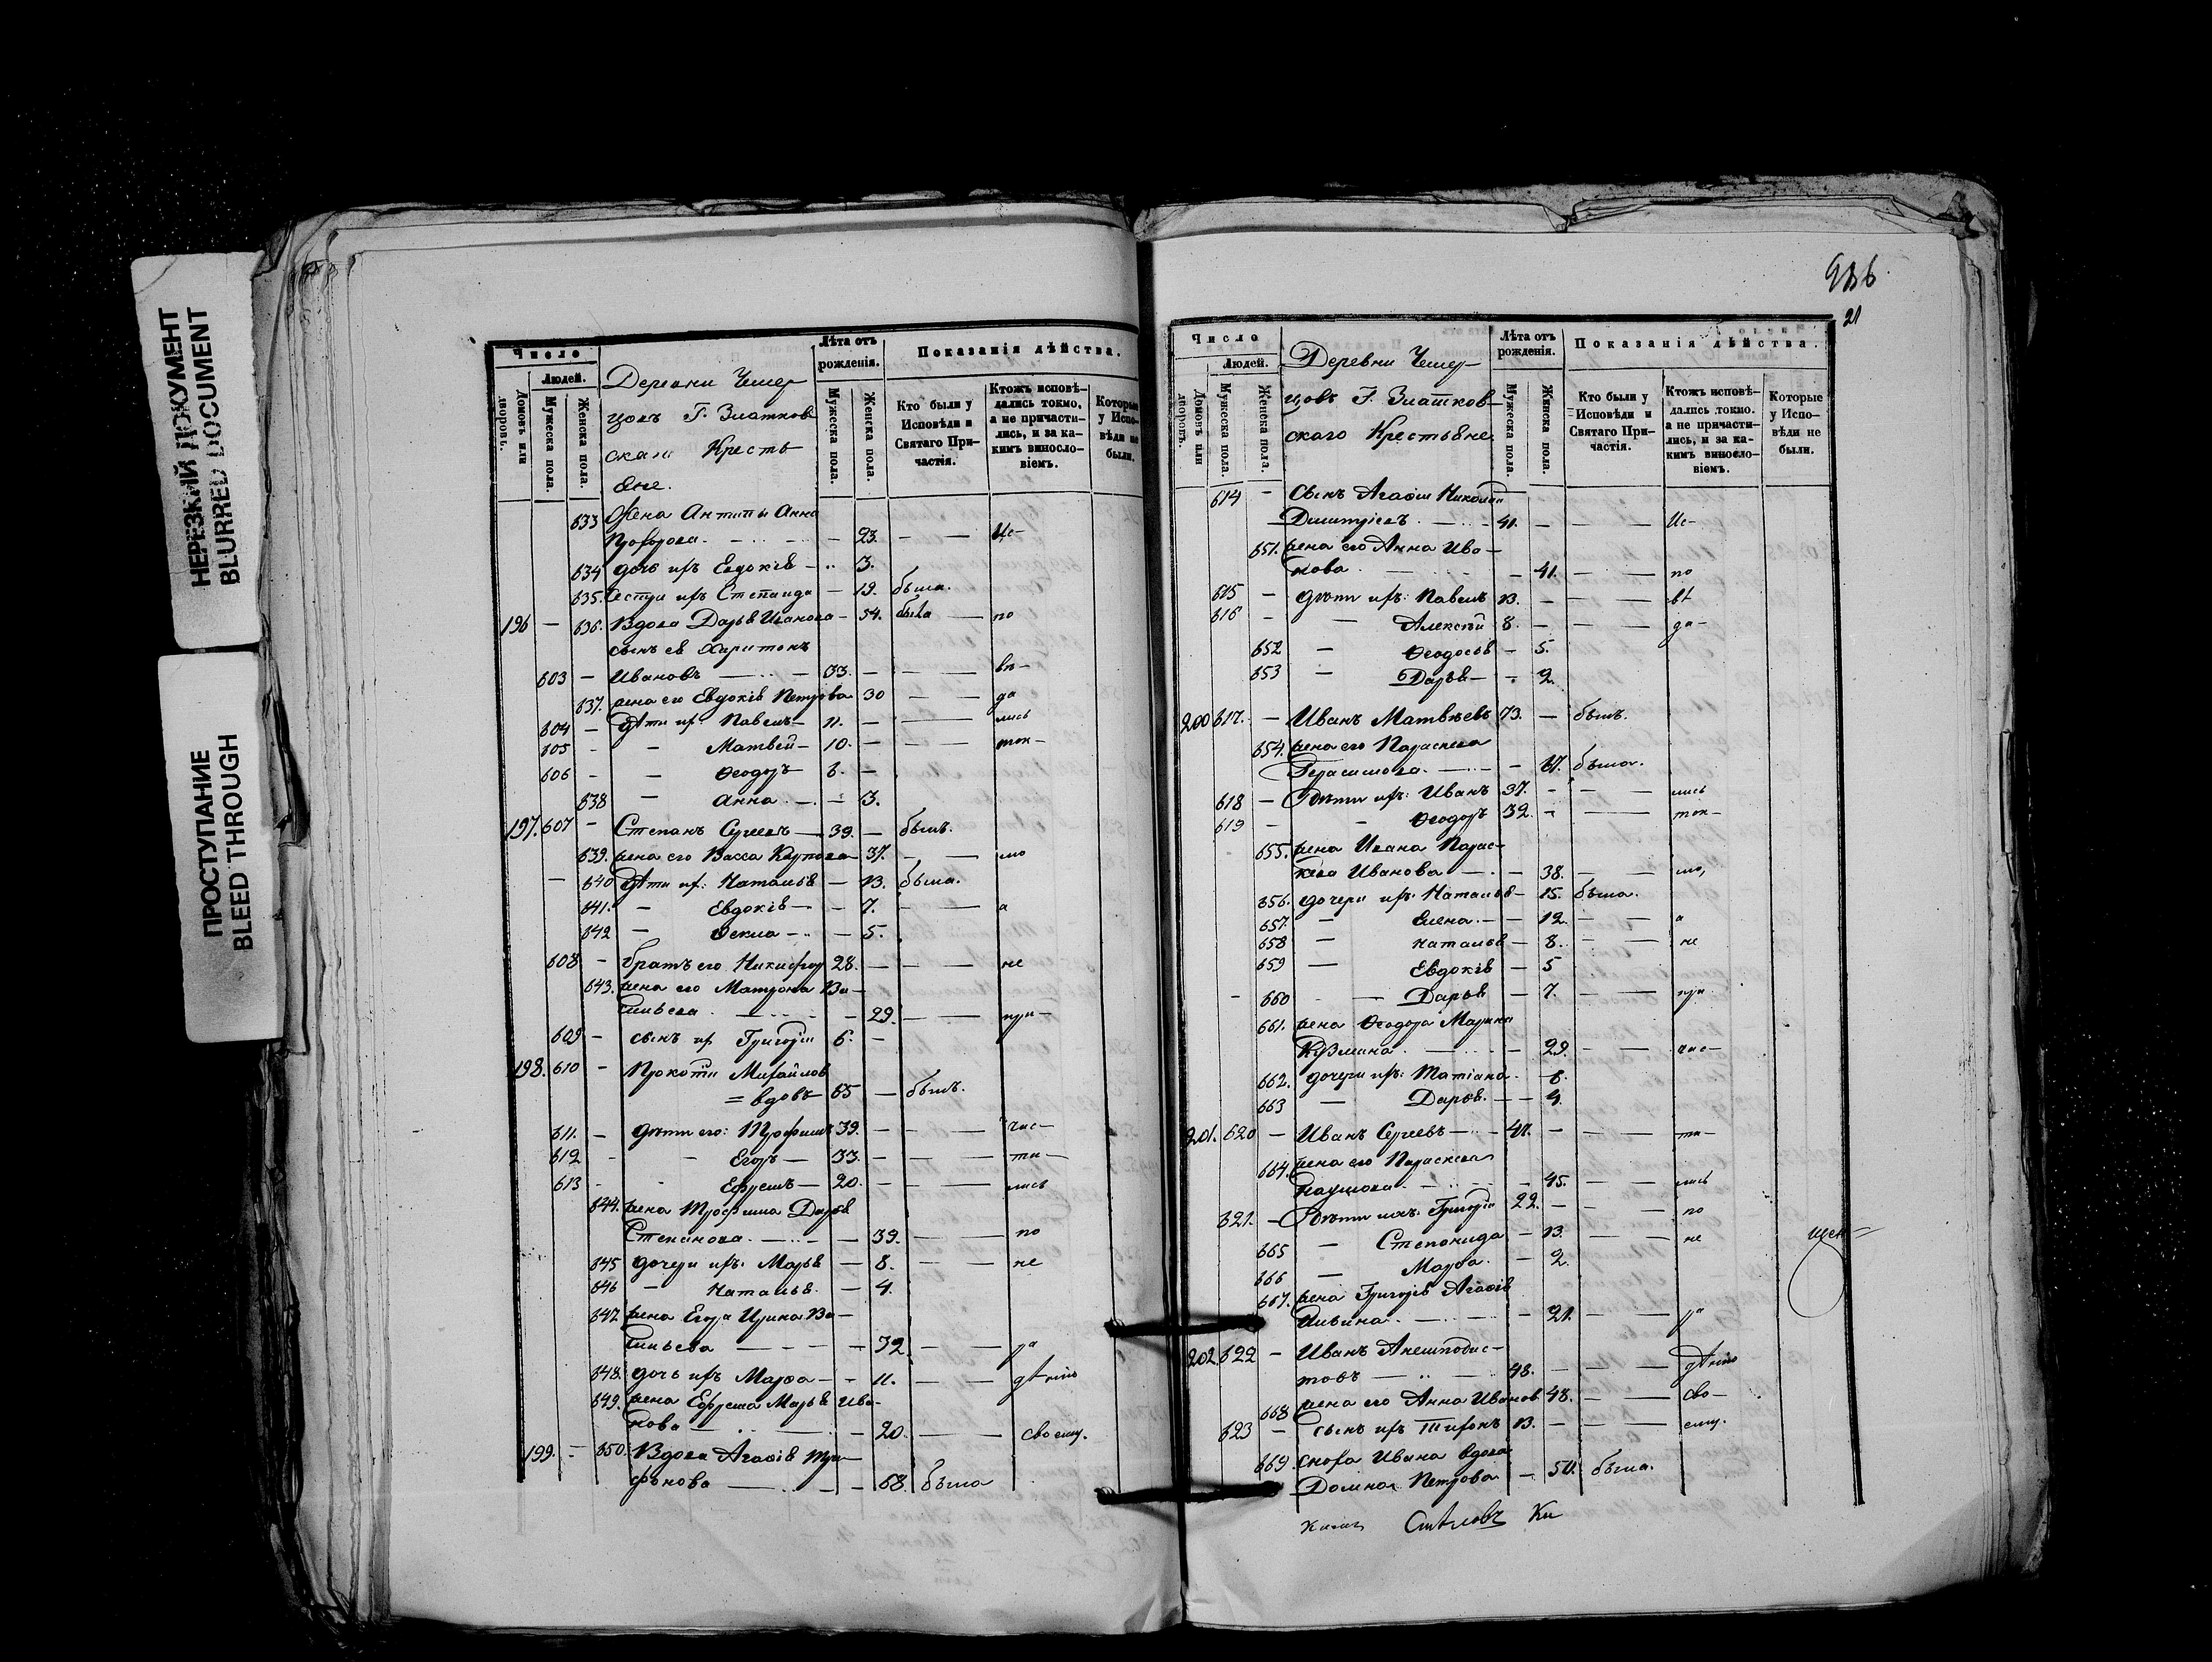 НЕРЕЗКИЙ ДОКУМЕНТ
BLURRED DOCUMENT
ПРОСТУПАНИЕ
BLEED THROUGH
Число
Людей.
Домовъ или дворовъ.
Мужеска пола.
Женска пола.
Деревни Чемер-
цовъ Г. Златков
скаго Кресть
яне.
Лѣта отъ рожденія.
Мужеска пола.
Женска пола.
Показанія дѣйства.
Кто были у Исповѣди и Святаго Причастія.
Ктожъ исповѣдались токмо, а не причастились, и за какимъ винословіемъ.
Которые у Исповѣди не были.
633 Жена Антипы Анна
Прохорова. — 23. — — Ис-
634 дочь ихъ Евдокія — 3.
635. Сестра ихъ Степанида — 19. была.
196 — 636. Вдова Дарья Иванова — 54. была — по
сынъ ея Харитонъ
603 — Ивановъ — 33. — — вѣ-
637. жена его Евдокія Петрова 30 — — да
604 — Дѣти их: Павелъ — 11. — — лись
605 — — Матвей — 10. — — ток-
606 — — Ѳеодоръ 6. —
638 — Анна — 3.
197. 607 — Степанъ Сергеевъ — 39. — былъ.
639. жена его Васса Карпова — 37. — — мо
— 640 Дѣти их: Наталья — 13. была.
641. — Евдокія — 7. — — а
642 — Ѳекла — 5.
608 — братъ его Никифоръ 28. — — не
643. жена его Матрона Ва-
сильева — 29. — — при-
609 — сынъ их Григорій 6. —
198. 610 — Прокопій Михайлов
= вдовъ 65 — былъ.
611. — дѣти его: Трофимъ 39. — — час-
612 — — Егоръ — 33. — — ти-
613 — — Ефремъ — 20. — — лись
644. жена Трофима Дарья
Степанова. — 39. — — по
645 дочери ихъ: Марья — 8. — — не
646 — Наталья. — 4.
647 жена Егора Ирина Ва-
сильева — 32. — — ра
648. дочь ихъ Марѳа — 11. — — дѣнію
649. жена Ефрема Марья Ива-
нова — 20. — — своему.
199. — 650. Вдова Агаѳія Три-
фонова — 68. была
936.
21
Число
Людей.
Домовъ или дворовъ.
Мужеска пола.
Женска пола.
Деревни Чемер-
цовъ Г. Златков-
скаго Крестьяне.
Лѣта отъ рожденія.
Мужеска пола.
Женска пола.
Показанія дѣйства.
Кто были у Исповѣди и Святаго Причастія.
Ктожъ исповѣдались токмо. а не причастились, и за какимъ винословіемъ.
Которые у Исповѣди не были.
614 — Сынъ Агаѳіи Николай
Дмитріевъ. — 41. — — Ис-
651. жена его Анна Ива-
нова — 41. — — по
615 — Дѣти ихъ: Павелъ 13. — — вѣ
616 — — Алексѣй 8. — — да-
652 — Ѳеодосья — 5.
653 — Дарья — 2.
200 617. — Иванъ Матвѣевъ 73. — былъ.
654. жена его Параскева
Герасимова. — 67. была.
618 — Дѣти ихъ: Иванъ 37. — — лись
619 — — Ѳеодоръ 32. — — ток-
655. жена Ивана Парас-
кева Иванова — 38. — — мо,
656. дочери ихъ: Наталья — 15. была.
657. — Елена. — 12. — — а
658 — Наталья — 8. — — не
659 — Евдокія — 5
660 — Дарья — 7. — — при
661. жена Ѳеодора Марина
Кузмина. — 29. — — час-
662. дочери ихъ: Татіана. — 8.
663 — Дарья. — 4.
201. 620 — Иванъ Сергеевъ — 47. — — ти-
664. жена его Параскева
Наумова. — 45. — — лись
621. — Дѣти ихъ: Григорій 22. — — по
665 — Степонида — 13. — — не
666 — Марѳа. — 2.
667. жена Григорія Агаѳія
Ильина. — 21. — — ра
202 622 — Иванъ Анемподис-
товъ — 48. — — дѣнію
668 жена его Анна Иванов. 48. — — сво-
623 — Сынъ ихъ Тифонъ 13. — — ему.
669. Сноха Ивана вдова
Домна Петрова — 50. была.